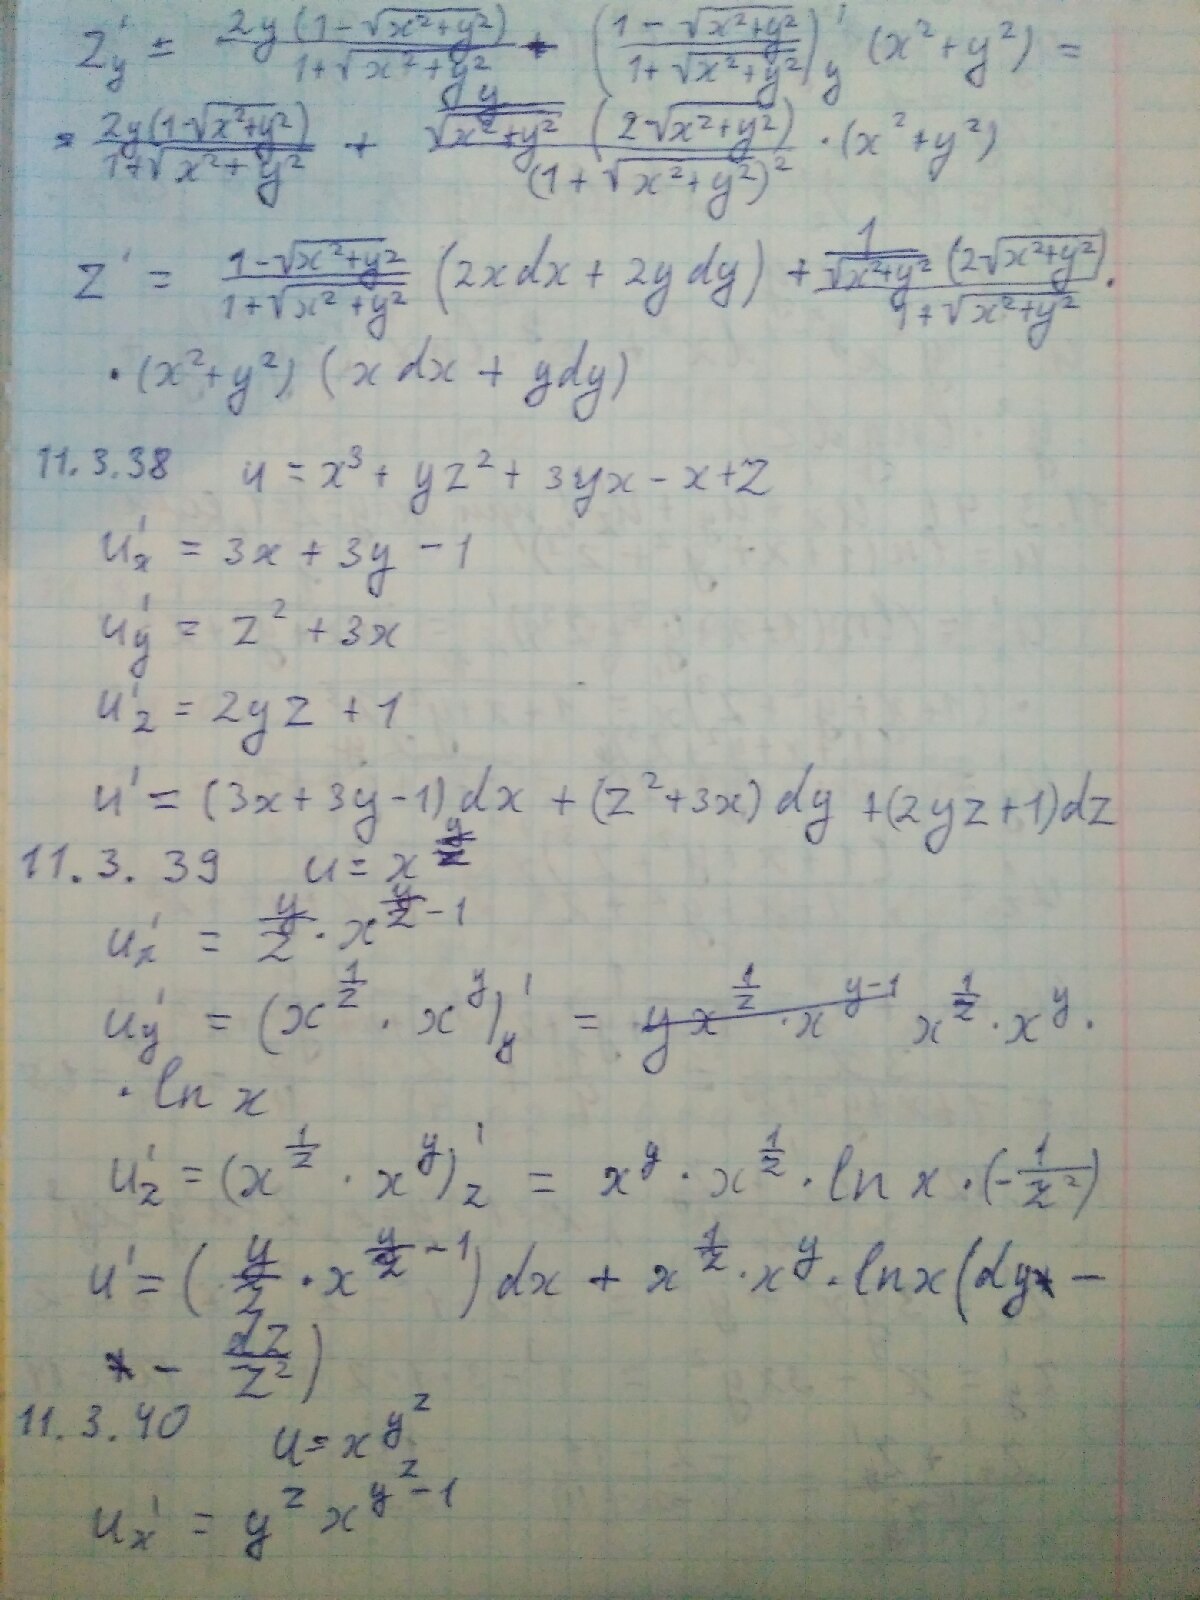 z'_y = \frac{2y(1-\sqrt{x^2+y^2})}{1+\sqrt{x^2+y^2}} + \left(\frac{1-\sqrt{x^2+y^2}}{1+\sqrt{x^2+y^2}}\right)'_y (x^2+y^2) =
= \frac{2y(1-\sqrt{x^2+y^2})}{1+\sqrt{x^2+y^2}} + \frac{\frac{y}{\sqrt{x^2+y^2}}(2\sqrt{x^2+y^2})}{(1+\sqrt{x^2+y^2})^2} \cdot (x^2+y^2)
z' = \frac{1-\sqrt{x^2+y^2}}{1+\sqrt{x^2+y^2}} (2xdx + 2ydy) + \frac{\frac{1}{\sqrt{x^2+y^2}}(2\sqrt{x^2+y^2})}{1+\sqrt{x^2+y^2}} \cdot
\cdot (x^2+y^2) (xdx + ydy)
11.3.38 u = x^3 + yz^2 + 3yx - x + z
u'_x = 3x + 3y - 1
u'_y = z^2 + 3x
u'_z = 2yz + 1
u' = (3x+3y-1)dx + (z^2+3x)dy + (2yz+1)dz
11.3.39 u = x^{\frac{y}{z}}
u'_x = \frac{y}{z} \cdot x^{\frac{y}{z}-1}
u'_y = (x^{\frac{1}{z}} \cdot x^y)'_y = x^{\frac{1}{z}} \cdot x^y \cdot
\cdot ln x
u'_z = (x^{\frac{1}{z}} \cdot x^y)'_z = x^y \cdot x^{\frac{1}{z}} \cdot ln x \cdot (-\frac{1}{z^2})
u' = (\frac{y}{z} \cdot x^{\frac{y}{z}-1})dx + x^{\frac{1}{z}} \cdot x^y \cdot ln x (dy -
- \frac{dz}{z^2})
11.3.40 u = x^{y^z}
u'_x = y^z x^{y^z-1}